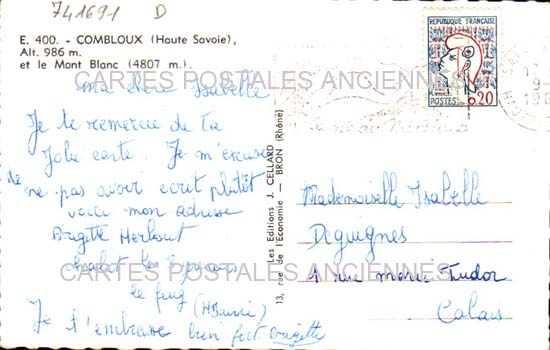 741691 D
E. 400. - COMBLOUX (Haute Savoie),
Alt. 986 m.
et le Mont Blanc (4807 m.).
RÉPUBLIQUE FRANÇAISE
POSTES 0,20
CARTES POSTALES ANCIENNES
ma chère Isabelle
Je te remercie de ta
Jolie carte. Je m'excuse
de ne pas avoir ecrit plutôt
voici mon adresse
Brigitte
chalet les
le feug
Je t'embrasse bien fort Brigitte
Les Editions J. CELLARD
13, rue de l'Economie - BRON (Rhône)
Mademoiselle Isabelle
Deguignes
1 rue marie Tudor
Calais
CARTES POSTALES ANCIENNES